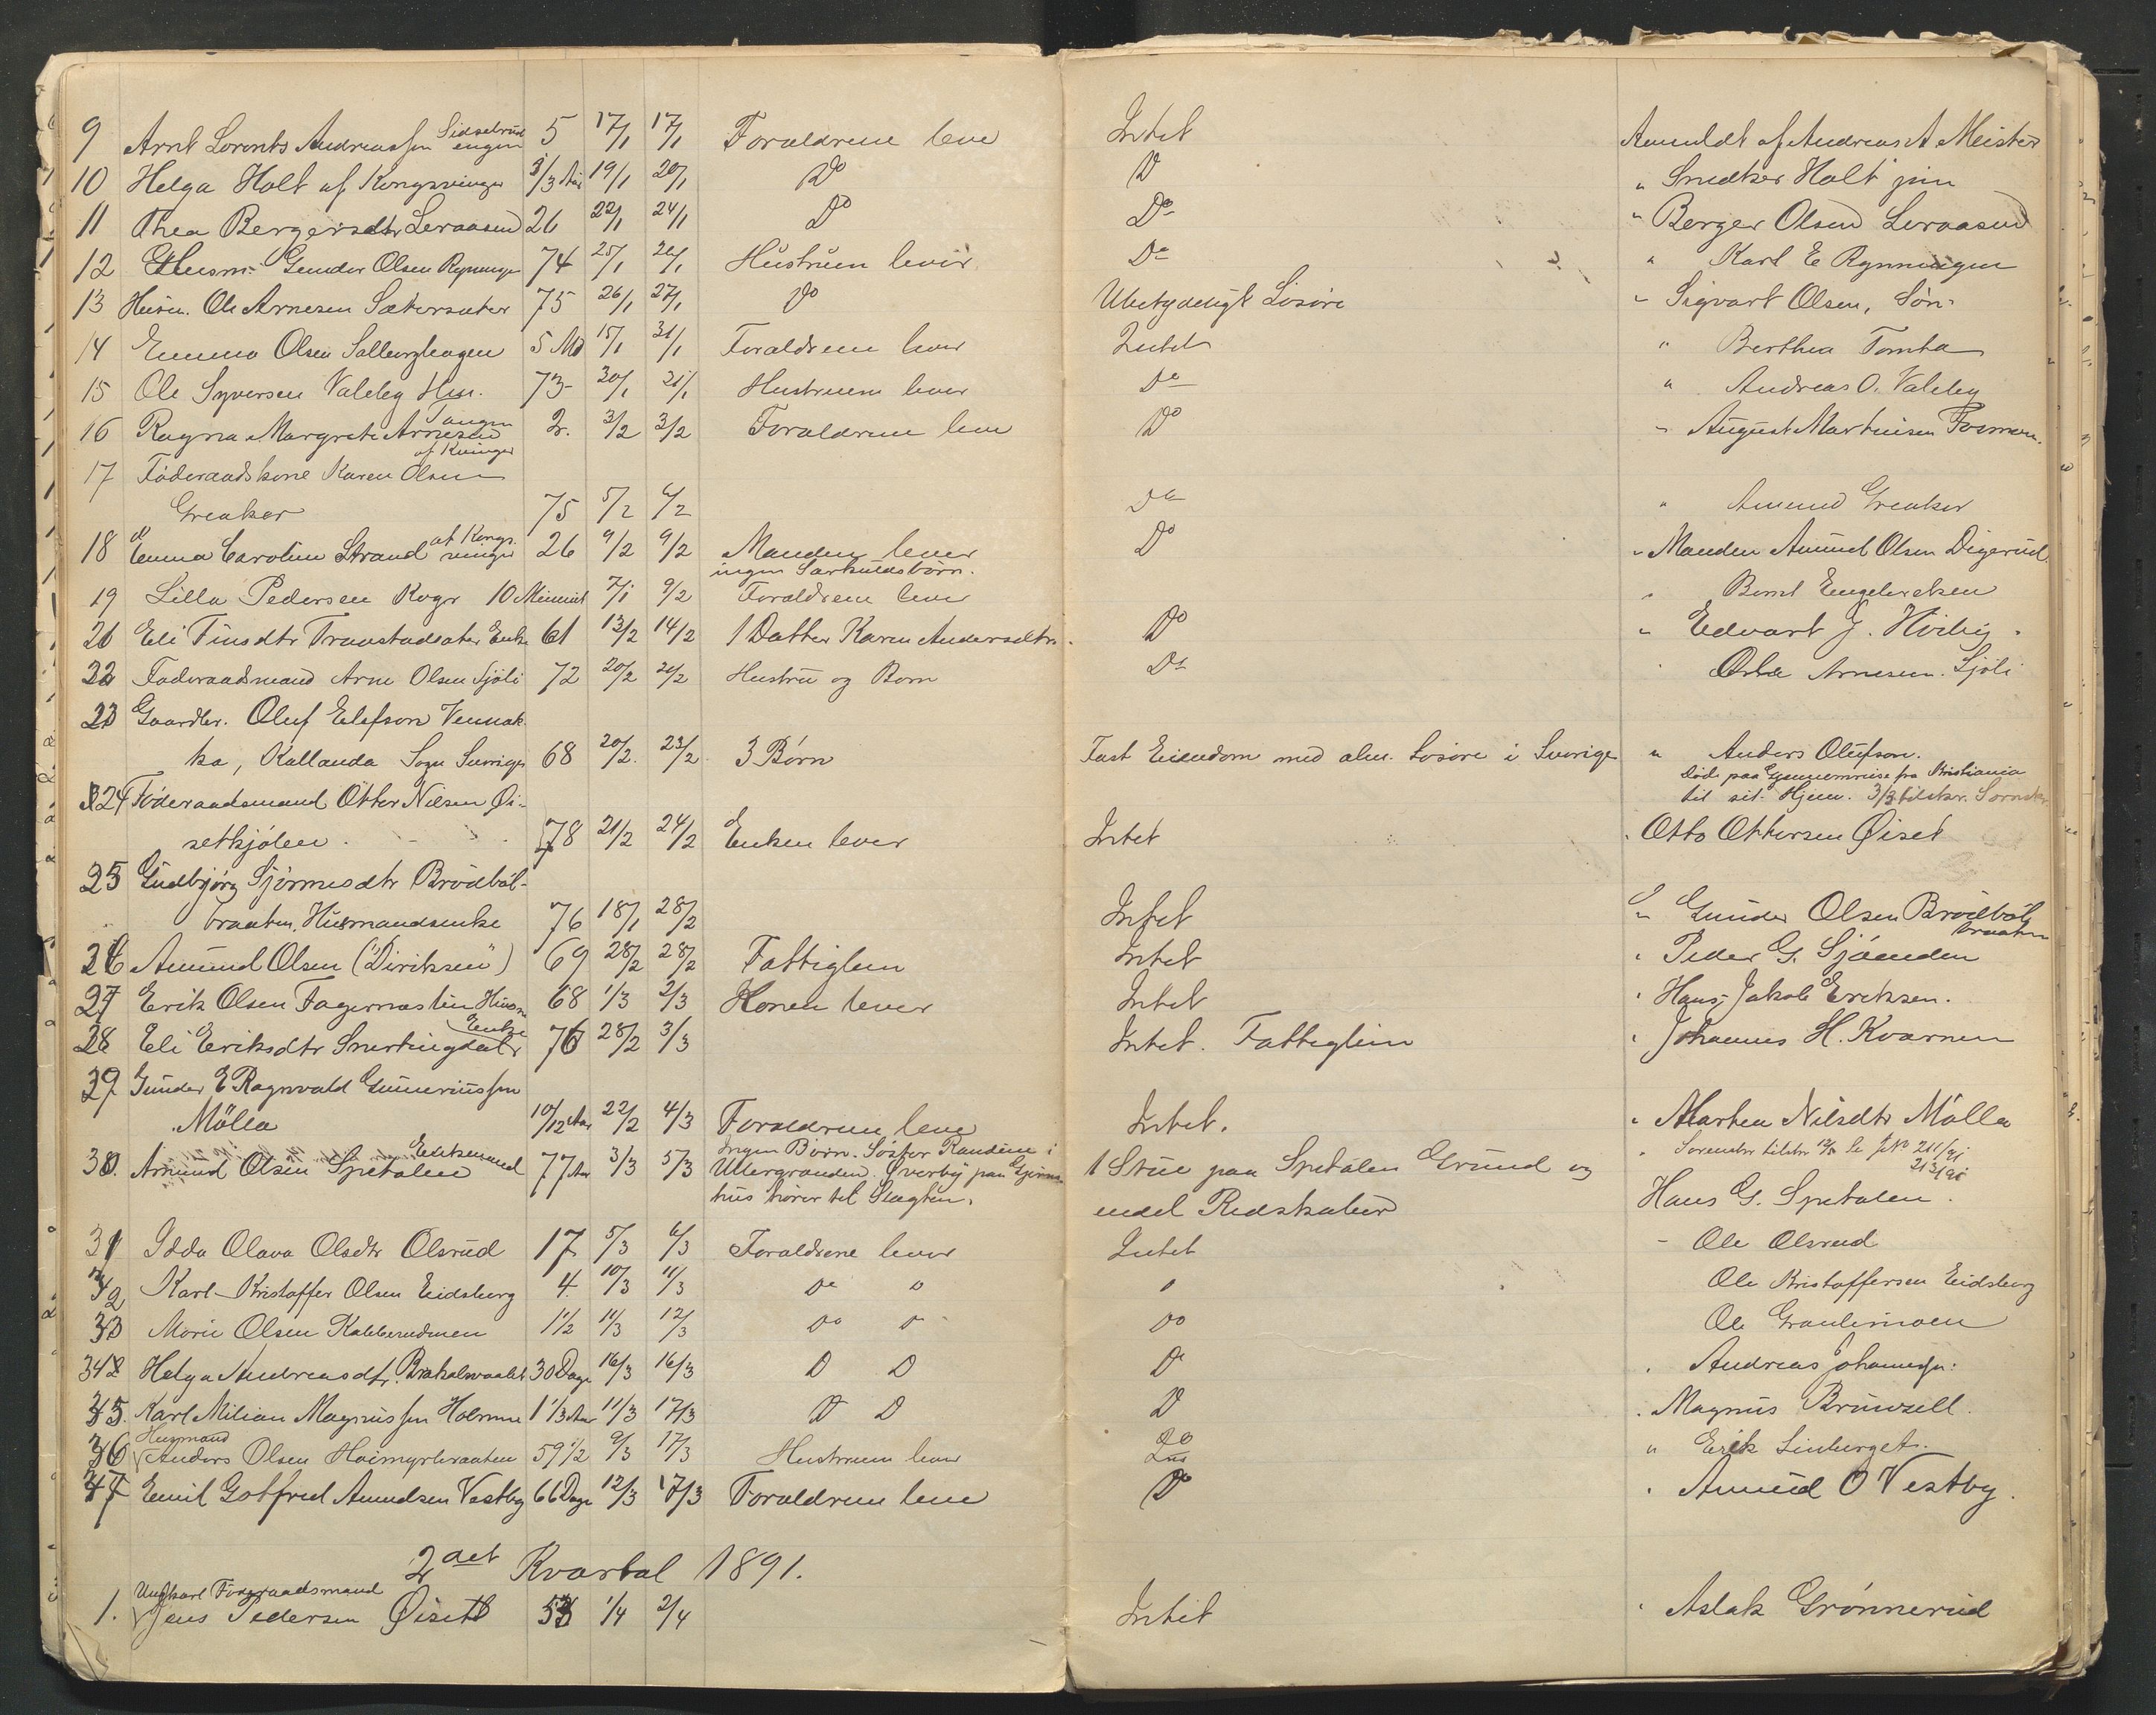 9 Arnt Lorents Andreassen Sidselrud engen 5 17/1 17/1 Forældrene leve Intet Anmeldt af Andreas A Meister
10 Helga Holt af Kongsvinger 3/3 Aar 19/1 20/1 Do D " Snedker Holt jun
11 Thea Bergersdtr Leraasen 26 22/1 24/1 Do Do " Berger Olsen Leraasen
12 Husm. Gunder Olsen Rynninge 74 25/1 26/1 Hustruen lever Do " Karl E Rynningen
13 Husm. Ole Arnesen Sætersæter 75 26/1 27/1 Do Ubetydeligt Løsøre " Sigvart Olsen, Søn
14 Emma Olsen Solberghagen 5 Md 15/1 31/1 Forældrene lever Intet " Berthea Tomta
15 Ole Syversen Valeby Hsm. 73 30/1 31/1 Hustruen lever Do " Andreas O. Valeby
16 Ragna Margrete Arnesen Tangen af Kvinger 2. 3/2 3/2 Forældrene leve Do " August Martinsen Formann.
17 Føderaadskone Karen Olsen
Greaker 75 5/2 6/2 Do " Amund Greaker
18 Emma Caroline Strand af Kongsvinger 26 9/2 9/2 Manden lever Do " Manden Amund Olsen Digerud
ingen Særkuldsbørn.
19 Lilla Pedersen Roger 10 Minut 7/1 9/2 Forældrene lever " Bernt Engebretsen
20 Eli Finsdtr Travstadsæter Enke 61 13/2 14/2 1 Datter Karen Andersdtr. Do " Edvart J. Hviby.
22 Føderaadsmand Arne Olsen Sjøli 72 20/2 20/2 Hustru og Børn Do Arnesen Sjøli
23 Gaardbr. Oluf Elefson Vennak
ka, Kallanda Sogn Sverige 68 20/2 23/2 3 Børn Fast Eiendom med alm. Løsøre i Sverige " Anders Olufson.
Døde paa Gjennemreise fra Kristiania
til sit Hjem. 3/3 tilskr. Sorenskr.
24 Føderaadsmand Otter Nilsen Øi-
setkjølen 78 21/2 24/2 Enken lever Intet " Otto Ottersen Øiset
25 Gudbjørg Sjørnesdtr Brødbøl-
braaten, Husmandsenke 76 18/1 28/2 Intet " Gunder Olsen Brødbøl braaten
26 Amund Olsen ("Diriksen") 69 28/2 28/2 Fattiglem Intet " Peder G. Sjøenden
27 Erik Olsen Fagernæslien Husm 68 1/3 2/3 Konen lever Intet " Hans Jakob Eriksen.
28 Eli Eriksdtr Snertingdal Enke 76 28/2 3/3 Intet. Fattiglem " Johannes H. Kvarnen
29 Gunder E Ragnvald Gunneriussen
Mölla 10/12 Aar 22/2 4/3 Forældrene leve Intet. " Marthea Nilsdtr Mölla
30. Amund Olsen Spetalen Enkemand 77 Aar 3/3 5/3 Ingen Børn. Søster Randine i 1 Stue paa Spetalen Grund og " Sorenskr tilskr Se JNo 211/91
Ullergranden. Øverby paa Gjerms- 213/91
hus hører til Slægten. endel Redskaber Hans G. Spetalen.
31 Idda Olava Olsdtr Olsrud 17 5/3 6/3 Forældrene lever Intet - Ole Olsrud
32 Karl Kristoffer Olsen Eidsberg 4 10/3 11/3 Do " " Ole Kristoffersen Eidsberg
33 Marie Olsen Kabberudmoen 1 1/2 11/3 12/3 Do D Do Ole Granlimoen
34 Helga Andreasdtr. 30 Dage 16/3 16/3 D D D " Andreas Johannessen.
35 Karl Milian Magnussen Holmen 1 1/3 Aar 11/3 17/3 D D D " Magnus Bruvsell.
36 Husmand Anders Olsen Hoimyrbraaten 59 1/2 9/3 17/3 Hustruen lever Do " Erik Linberget.
37 Emil Gotfred Amundsen Vestby 66 Dage 12/3 17/3 Forældrene leve Do " Amund O Vestby.
2det Kvartal 1891.
1. Ungkarl Føderaadsmand Jens Pedersen Øiset 53 1/4 2/4 Intet " Aslak Grønnerud